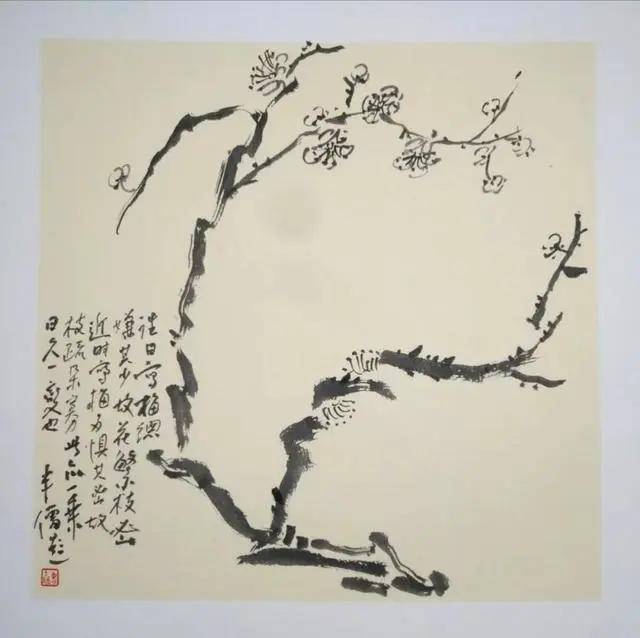 往日写梅总
嫌其少故花繁枝密
近时写梅力惧其密故
枝疏朵寡此亦一乘
日久一变也
半儒题